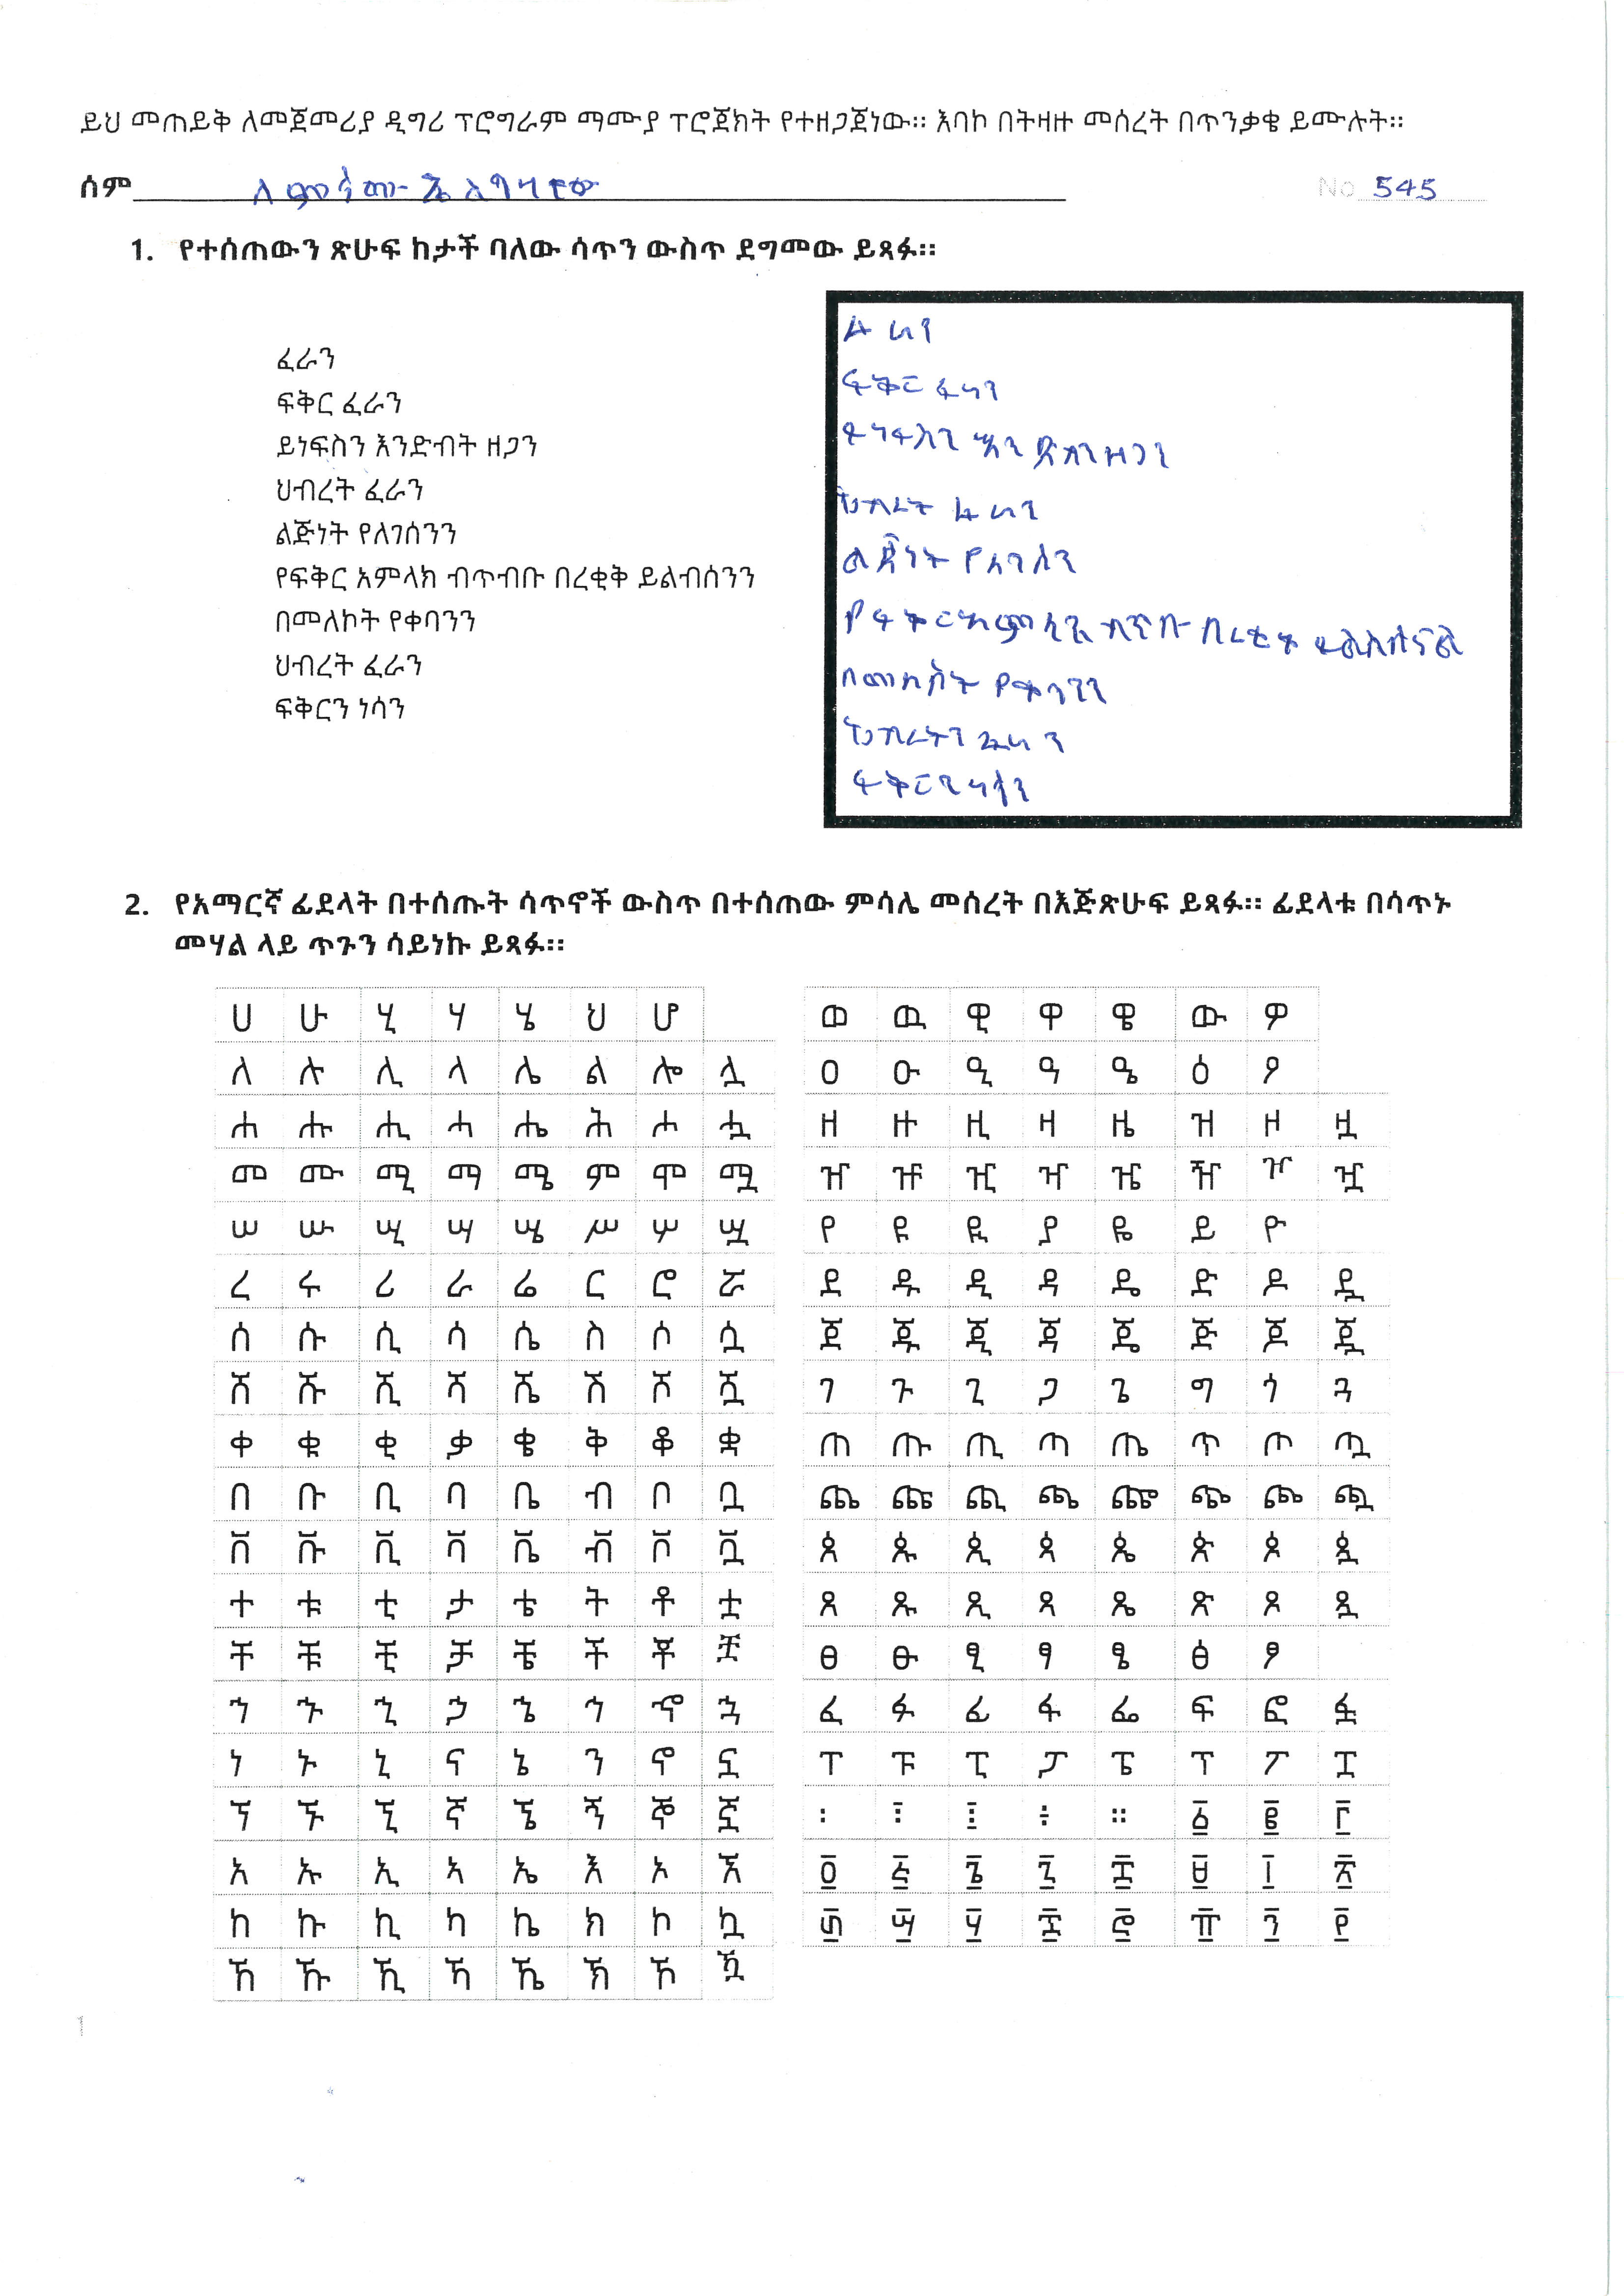 ይህ መጠይቅ ለመጀመሪያ ዲግሪ ፕሮግራም ማሙያ ፕሮጀክት የተዘጋጀነው። እባኮ በትዛዙ መሰረት በጥንቃቄ ይሙሉት።
ስም No 545
1. የተሰጠውን ጽሁፍ ከታች ባለው ሳጥን ውስጥ ደግመው ይጻፉ።
ፈራን
ፍቅር ፈራን
ይነፍስን እንድብት ዘጋን
ህብረት ፈራን
ልጅነት የለገሰንን
የፍቅር አምላክ ብጥብቡ በረቂቅ ይልብሰንን
በመለኮት የቀባንን
ህብረት ፈራን
ፍቅርን ነሳን
ፈራን
ፍቅር ፈራን
ህብረት ፈራን
ልጅነት
በመለኮት የቀባንን
ህብረትን ፈራን
ፍቅርን ነሳን
2. የአማርኛ ፊደላት በተሰጡት ሳጥኖች ውስጥ በተሰጠው ምሳሌ መሰረት በእጅጽሁፍ ይጻፉ። ፊደላቱ በሳጥኑ
መሃል ላይ ጥጉን ሳይነኩ ይጻፉ።
ሀ ሁ ሂ ሃ ሄ ህ ሆ
ለ ሉ ሊ ላ ሌ ል ሎ ሏ
ሐ ሑ ሒ ሓ ሔ ሕ ሖ ሗ
መ ሙ ሚ ማ ሜ ም ሞ ሟ
ሠ ሡ ሢ ሣ ሤ ሥ ሦ ሧ
ረ ሩ ሪ ራ ሬ ር ሮ ሯ
ሰ ሱ ሲ ሳ ሴ ስ ሶ ሷ
ሸ ሹ ሺ ሻ ሼ ሽ ሾ ሿ
ቀ ቁ ቂ ቃ ቄ ቅ ቆ ቋ
በ ቡ ቢ ባ ቤ ብ ቦ ቧ
ቨ ቩ ቪ ቫ ቬ ቭ ቮ ቯ
ተ ቱ ቲ ታ ቴ ት ቶ ቷ
ቸ ቹ ቺ ቻ ቼ ች ቾ ቿ
ኀ ኁ ኂ ኃ ኄ ኅ ኆ ኋ
ነ ኑ ኒ ና ኔ ን ኖ ኗ
ኘ ኙ ኚ ኛ ኜ ኝ ኞ ኟ
አ ኡ ኢ ኣ ኤ እ ኦ ኧ
ከ ኩ ኪ ካ ኬ ክ ኮ ኳ
ኸ ኹ ኺ ኻ ኼ ኽ ኾ ዃ
ወ ዉ ዊ ዋ ዌ ው ዎ
ዐ ዑ ዒ ዓ ዔ ዕ ዖ
ዘ ዙ ዚ ዛ ዜ ዝ ዞ ዟ
ዠ ዡ ዢ ዣ ዤ ዥ ዦ ዧ
የ ዩ ዪ ያ ዬ ይ ዮ
ደ ዱ ዲ ዳ ዴ ድ ዶ ዷ
ጀ ጁ ጂ ጃ ጄ ጅ ጆ ጇ
ገ ጉ ጊ ጋ ጌ ግ ጎ ጓ
ጠ ጡ ጢ ጣ ጤ ጥ ጦ ጧ
ጨ ጩ ጪ ጫ ጬ ጭ ጮ ጯ
ጰ ጱ ጲ ጳ ጴ ጵ ጶ ጷ
ጸ ጹ ጺ ጻ ጼ ጽ ጾ ጿ
ፀ ፁ ፂ ፃ ፄ ፅ ፆ
ፈ ፉ ፊ ፋ ፌ ፍ ፎ ፏ
ፐ ፑ ፒ ፓ ፔ ፕ ፖ ፗ
፡ ፣ ፤ ÷ ። ፩ ፪ ፫
፬ ፭ ፮ ፯ ፰ ፱ ፲ ፳
፴ ፵ ፶ ፷ ፸ ፹ ፺ ፻
1